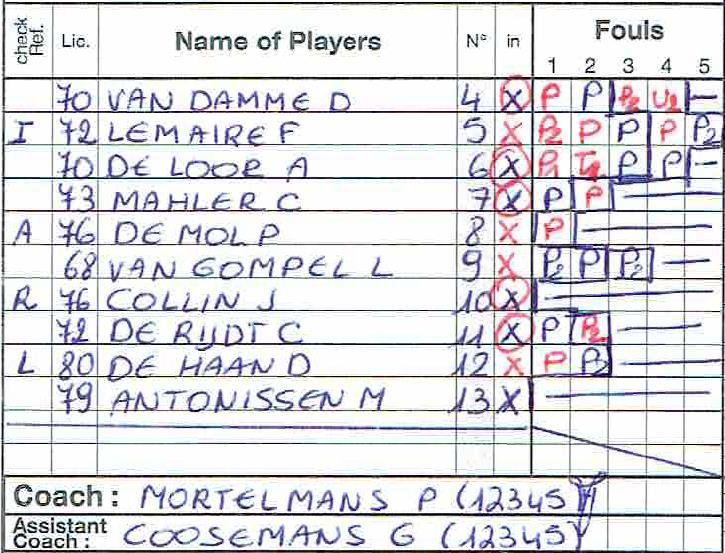 check Ref. Lic. Name of Players N° in Fouls
1 2 3 4 5
70 VAN DAMME D 4 X P P P2 U2 —
I 72 LEMAIRE F 5 X P2 P P P P2
70 DE LOOR A 6 X P1 P P —
73 MAHLER C 7 X P P —
A 76 DE MOL P 8 X P —
68 VAN GOMPEL L 9 X P2 P P2 —
R 76 COLLIN J 10 X —
72 DE RIJDT C 11 X P P2 —
L 80 DE HAAN D 12 X P P2
79 ANTONISSEN M 13 X —
Coach : MORTELMANS P (12345)
Assistant Coach : COOSEMANS G (12345)